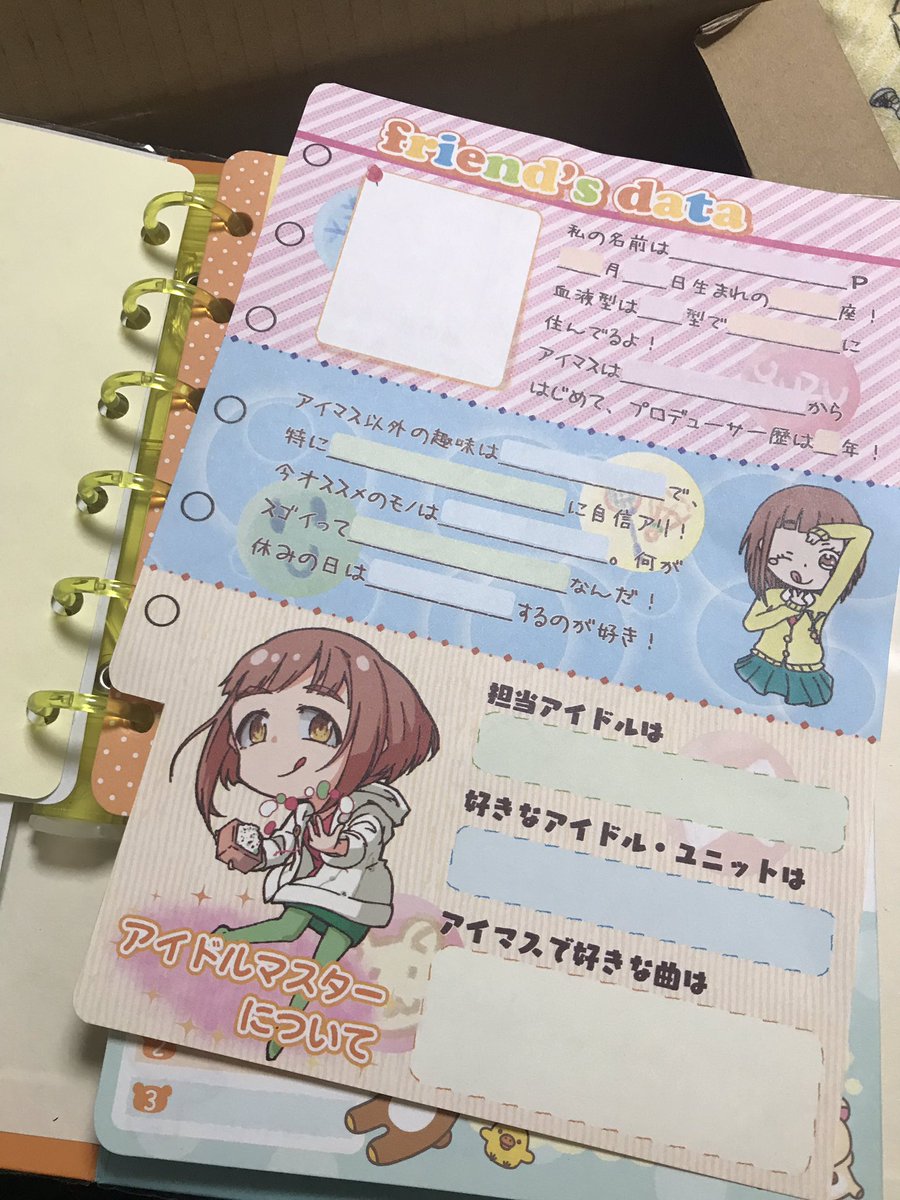 friend's data
私の名前は P
月 日生まれの 座！
血液型は 型で に
住んでるよ！
アイマスは から
はじめて、プロデューサー歴は 年！
アイマス以外の趣味は で、
特に に自信アリ！
今オススメのモノは 。何が
スゴイって なんだ！
休みの日は するのが好き！
担当アイドルは
好きなアイドル・ユニットは
アイマスで好きな曲は
アイドルマスター
について
2
3